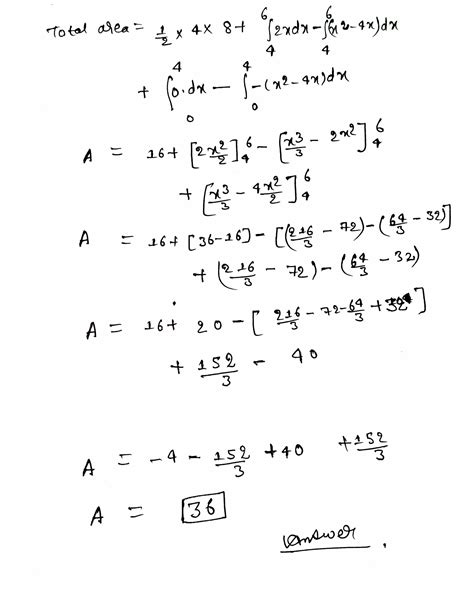 Total area = 1/2 × 4 × 8 + ∫₄⁶ 2xdx − ∫₄⁶ (x²−4x)dx
+ ∫₀⁴ 0·dx − ∫₀⁴ −(x²−4x)dx
A = 16 + [2x²/2]₄⁶ − [x³/3 − 2x²]₄⁶
+ [x³/3 − 4x²/2]₄⁶
A = 16 + [36−16] − [(216/3 − 72) − (64/3 − 32)]
+ (216/3 − 72) − (64/3 − 32)
A = 16 + 20 − [216/3 − 72 − 64/3 + 32]
+ 152/3 − 40
A = −4 − 152/3 + 40 + 152/3
A = 36
Answer.